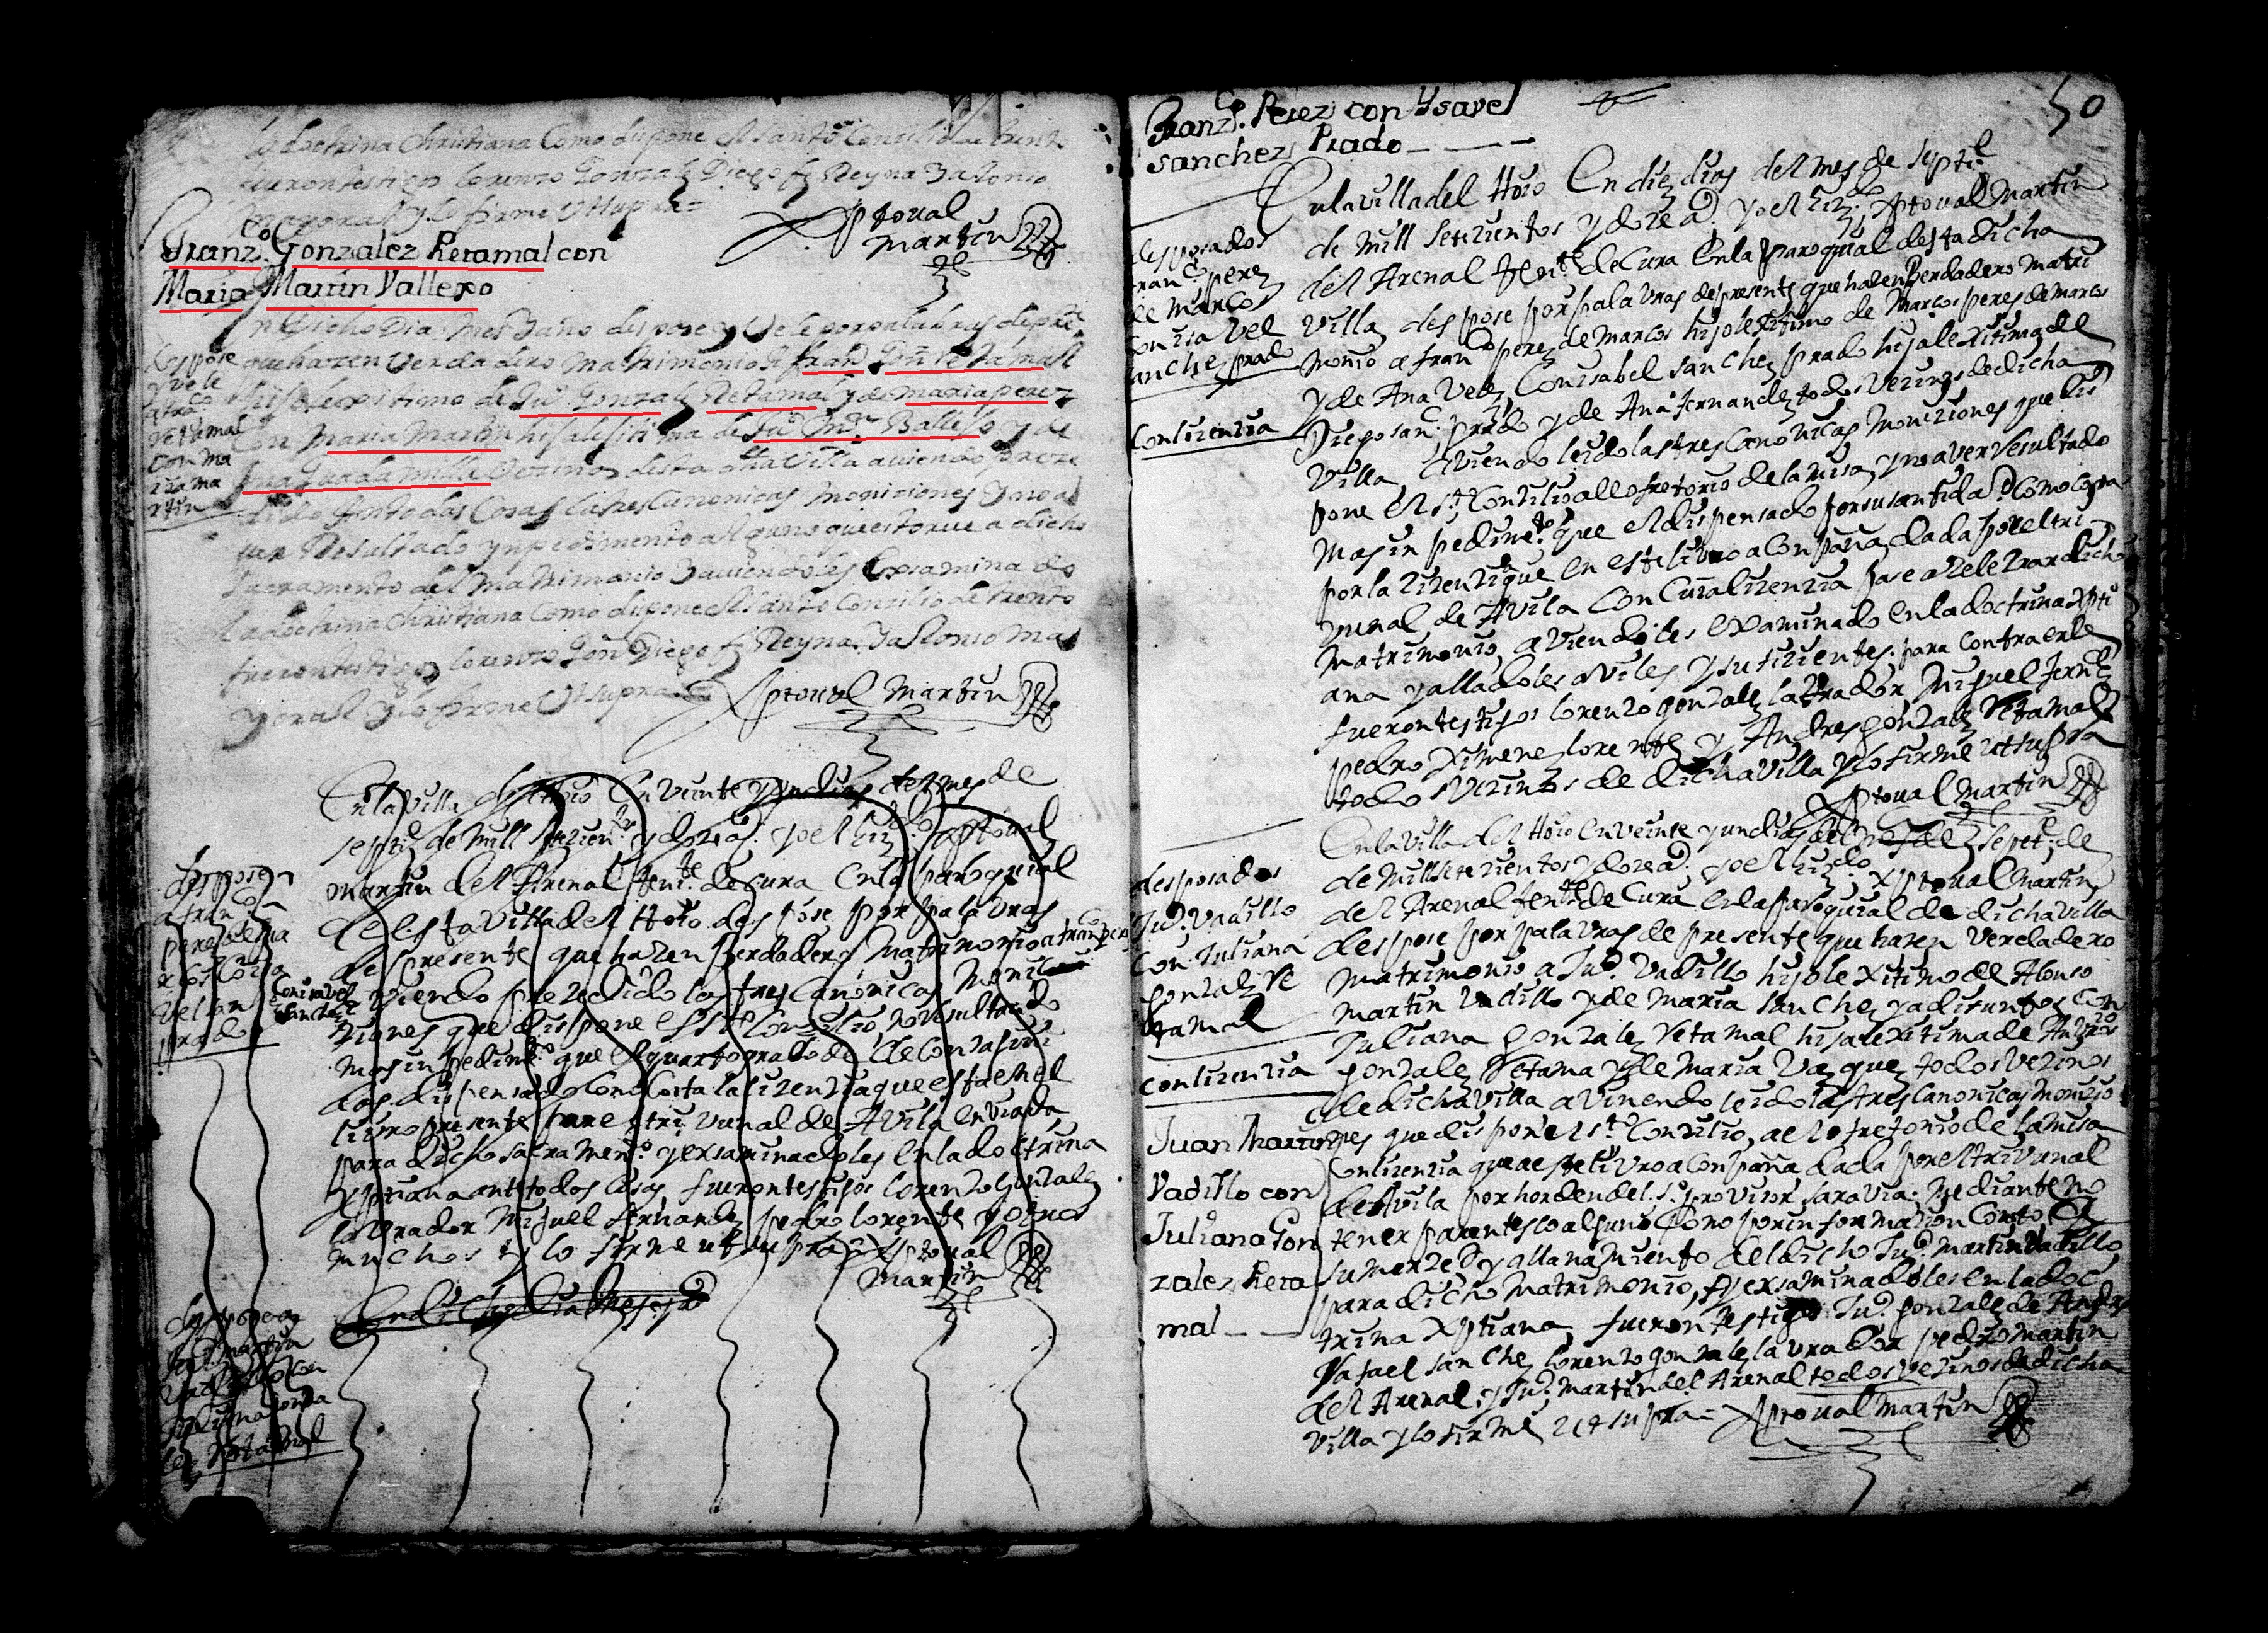 la doctrina Christiana Como dispone el santo Concilio de trento
fueron testigos lorenzo Gonzalez Diego fz Reyna y alonso
mayoral y lo firme Ut supra=
Xptoual
martin
Franzco. Gonzalez Retamal con
Maria Martin Vallexo
En dicho Dia Mes y año despose y Vele por palabras de preste.
que hazen Verdadero matrimonio a franco. Gonz Retamal
hijo lexitimo de Juo. Gonzalez Retamal y de maria perez
con maria martin hija lexitima de Juo. Mrn. Ballejo y de
Ana Guadamilla Vecinos desta dha Villa auiendo prece
dido Ante todas Cosas las tres Canonicas moniciones y no a
uer Resultado ynpedimento alguno que estorue a dicho
sacramento del matrimonio y auiendoles Examinado
la doctrina Christiana Como dispone el santo Concilio de trento
fueron testigos lorenzo Gon Diego fz Reyna y alonso ma
yoral y lo firme Ut supra=
Xptoual Martin
despose
y vele
a franco.
retamal
con ma
ria ma
rtin
En la villa del Hoio En veinte y un dias del mes de
septie. de mill setezien.tos y doze a.s yo el lizdo. Xptoual
martin del Arenal tente. de Cura En la paroquial
de esta villa del Hoio despose por palabras
de presente que hazen Berdadero matrimonio a franco perez
Con isavel
sanchez
aviendo prezedido las tres Canonicas moni
ziones que dispone el sto. Conzilio no resultado
mas inpedimto. que el quarto grado de Consaguini
dad dispensado Como Costa la lizenzia que esta en el
livro presente por el trivunal de Avila enviada
para dicho sacramento. y exsaminadoles En la doctrina
Xptiana ante todas Cosas fueron testigos lorenzo gonzalez
lavrador Miguel fernandez pedro lorente y otros
muchos y lo firme ut supra= Xptoual
Martin
despose
a franco
perez de ma
rcos Con isa
vel san
prado
En dicho Dia Mes y año
despose a
Juo. martin
vadillo Con
Juliana gonza
lez Retamal
50
Franzco. Perez con Ysavel
sanchez Prado
En la villa del Hoio En diez dias del mes de septie.
de mill setezientos y doze a.s yo el lizdo. Xptoual Martin
del Arenal tente. de Cura En la Paroquial desta dicha
villa despose por palavras de presente que hazen Berdadero matri
monio a franco perez de Marcos hijo lexitimo de Marcos perez de Marcos
y de Ana Velez Con isabel sanchez prado hija lexitima de
Diego sanc. prado y de Ana fernandez todos Vezinos de dicha
Villa aviendo leido las tres Canonicas Moniziones que dis
pone el sto. Conzilio al ofretorio de la misa y no aver resultado
mas inpedimto. que el dispensado por su santidad Como Costa
por la lizenzia que En este livro aConpaña dada por el tri
vunal de Avila Con Cuia lizenzia pase a zelebrar dicho
matrimonio aviendoles examinado En la doctrina Xpti
ana y alladoles aviles y sufizientes para Contraerle
fueron testigos lorenzo gonzalez labrador Miguel fernz
pedro Ximenez lorente y Andres gonzalez Retamal
todos vezinos de dicha Villa y lo firme ut supra
Xptoual Martin
desposados
franco. perez
de Marcos
Con isavel
sanchez prado
Con lizenzia
En la villa del Hoio En veinte y un dias del mes de Sepete. de
de Mill setezientos y doze a.s yo el lizdo. Xptoual Martin
del Arenal tente. de Cura En la paroquial de dicha villa
despose por palavras de presente que hazen Verdadero
Matrimonio a Juo. Vadillo hijo lexitimo de Alonso
Martin Vadillo y de Maria sanchez ya difuntos Con
Juliana gonzalez Retamal hija lexitima de Andres
gonzalez Retama y de Maria Vazquez todos vezinos
de dicha villa aviendo leido las tres Canonicas Monizio
nes que dispone el sto. Conzilio, al ofretorio de la misa
Con lizenzia que a este livro aConpaña dada por el trivunal
de Avila por horden del sr. provisor saravia. Mediante no
tener parentesco alguno Como por informazion Costo a
su merzed y allanamiento del dicho Juo. martin Vadillo
para dicho matrimonio, y exsaminadoles en la doc
trina Xptiana, fueron testigos Juo. gonzalez de Andres
Rafael sanchez lorenzo gonzalez lavrador pedro martin
del Arenal, y Juo. martin del Arenal todos vezinos de dicha
villa y lo firme ut supra= Xptoual Martin
desposados
Juo. Vadillo
Con Juliana
gonzalez Re
tamal
Con lizenzia
Juan Martin
Vadillo con
Juliana Gon
zalez Reta
mal